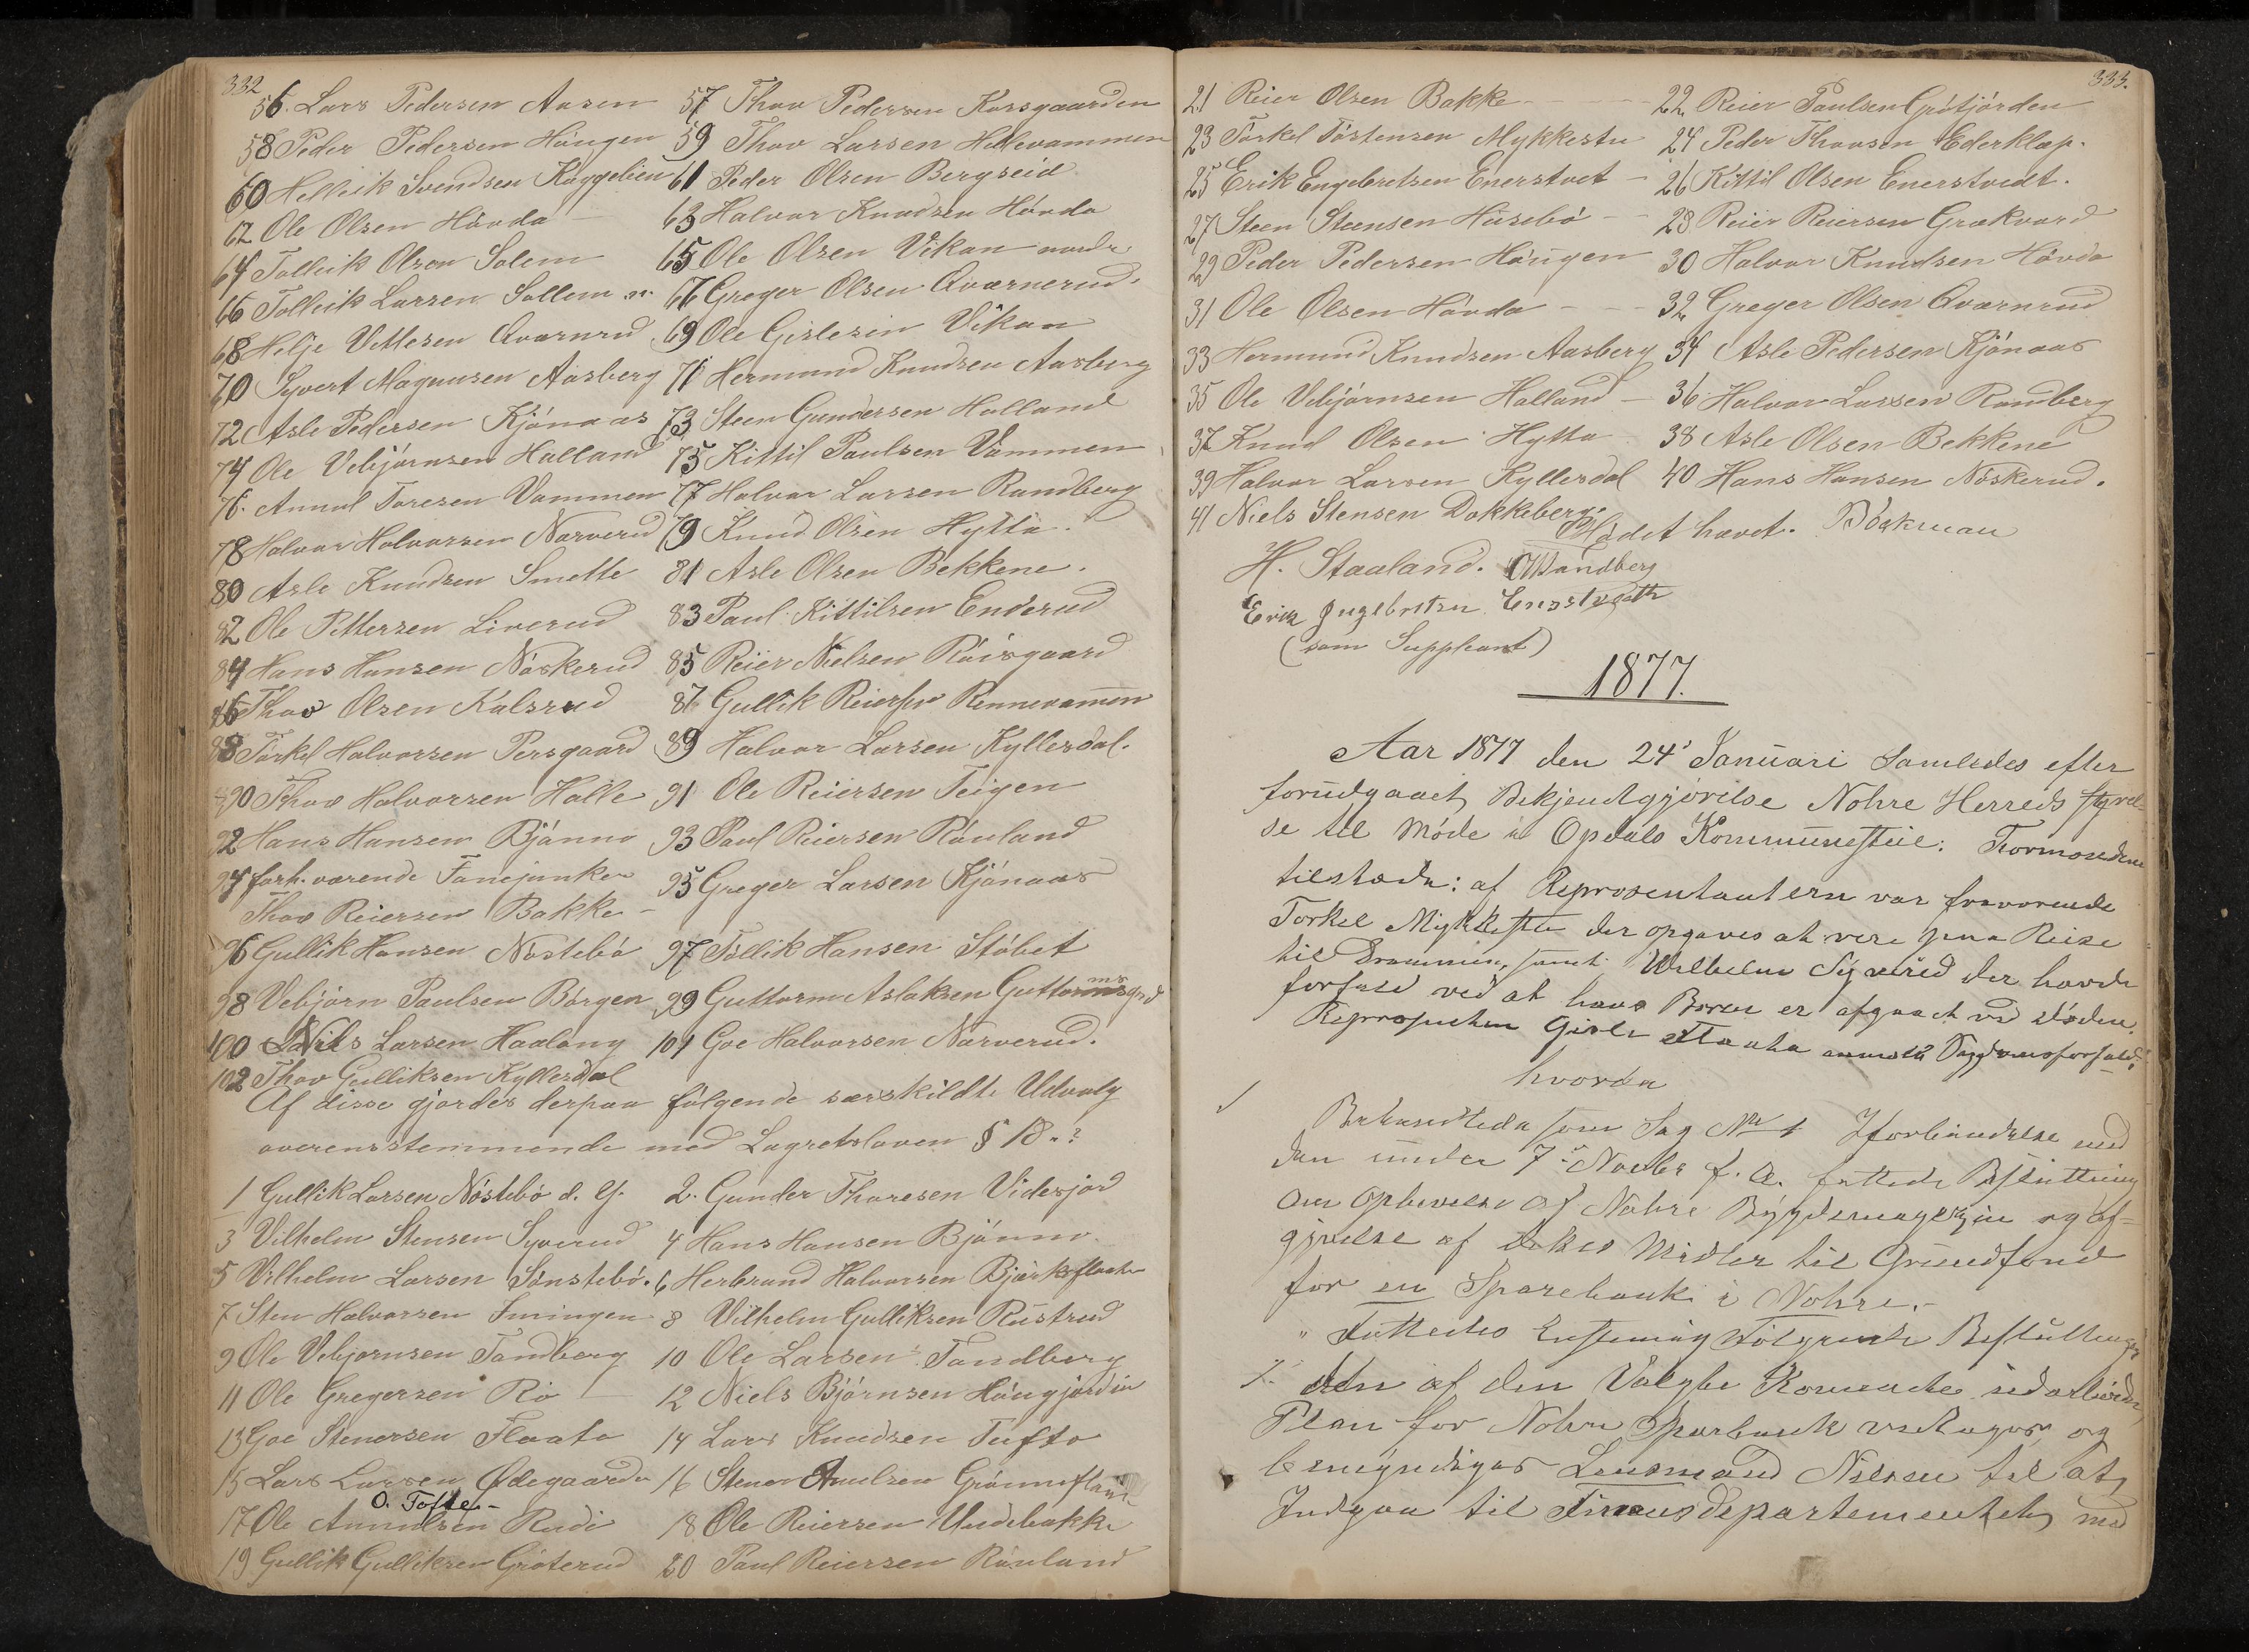 332
56. Lars Pedersen Aasen 57 Thov Pedersen Korsgaarden
58 Peder Pedersen Höugen 59 Thov Larsen Hellevammen
60 Helleik Svendsen Kaggelien 61 Peder Olsen Bergseid
62 Ole Olsen Hövda 63 Halvor Knudsen Hövda
64 Tolleik Olsen Solem 65 Ole Olsen Vikan nordr.
66 Tolleik Larsen Sollem n. 67 Greger Olsen Qværnerud.
68 Helje Vetlesen Qværnrud 69 Ole Gislesen Vikan
70 Syvert Magnusen Aasberg 71 Hermund Knudsen Aasberg
72 Asle Pedersen Kjönaas 73 Steen Gundersen Halland
74 Ole Vebjörnsen Halland 75 Kittil Paulsen Vammen
76. Annul Toresen Vammen 77 Halvor Larsen Randberg
78 Halvor Halvorsen Narverud 79 Knud Olsen Hytta.
80 Asle Knudsen Smette 81 Asle Olsen Bekkene.
82 Ole Pettersen Liverud 83 Paul Kittilsen Enderud
84 Hans Hansen Nöskerud 85 Reier Nielsen Röisgaard
86 Thov Olsen Kalsrud 87 Gullik Reiersen Rennevammen
88 Törkel Halvorsen Persgaard 89 Halvor Larsen Kyllesdal.
90 Thov Halvorsen Halle 91 Ole Reiersen Teigen
92 Hans Hansen Bjönno 93 Paul Reiersen Röuland
94 forh. værende Fanejunker 95 Greger Larsen Kjönaas
Thov Reiersen Bakke -
96 Gullik Hansen Nöstebö 97 Tollik Hansen Stöbet
98 Vebjörn Paulsen Börgen 99 Guttorm Aslaksen Guttormsgrd
100 Nils Larsen Haalang 101 Goe Halvorsen Narverud.
102 Thov Gulliksen Kyllesdal
Af disse gjordes derpaa følgende særskildte Udvalg
overensstemmende med Lagretsloven § 18.:
1 Gullik Larsen Nöstebö d. y. 2. Gunder Thoresen Videsjord
3 Vilhelm Stensen Syverud 4 Hans Hansen Bjönno.
5 Vilhelm Larsen Sönstebö. 6 Herbrand Halvorsen Bjørkeflaate
7 Sten Halvorsen Imingen 8 Vilhelm Gulliksen Rustrud
9 Ole Vebjornsen Tandberg 10 Ole Larsen Tandberg
11 Ole Gregersen Rö 12 Niels Björnsen Höugjorden
13 Goe Stenersen Flaata 14 Lars Knudsen Tufto
15 Lars Larsen Ødegaarden 16 Stener Anulsen Grönneflaata
O. Tofte -
17 Ole Annulsen Rudi 18 Ole Reiersen Undebakke
19 Gullik Gulliksen Gröterud 20 Paul Reiersen Röuland
333.
21 Reier Olsen Bakke - 22 Reier Paulsen Grötjörden
23 Törkel Töstensen Mykkestu 24 Peder Thovsen Ederklep.
25 Erik Engebretsen Enerstvet - 26 Kittil Olsen Enerstvedt.
27 Steen Steensen Husebö - 28 Reier Reiersen Grøkvard
29 Peder Pedersen Höugen 30 Halvor Knudsen Hövda
31 Ole Olsen Hövda - 32 Greger Olsen Qværnrud
33 Hermund Knudsen Aasberg 34 Asle Pedersen Kjönaas
35 Ole Vebjörnsen Halland - 36 Halvor Larsen Randberg
37 Knud Olsen Hytta 38 Asle Olsen Bekkene
39 Halvor Larsen Kyllesdal 40 Hans Hansen Nöskerud.
41 Niels Stensen Dokkeberg.
Mødet hævet. Böckman
H. Staaland. Sandberg
Erik Engebretsen Enerstvedt
(som Suppleant)
1877.
Aar 1877 den 24' Januari samledes efter
forudgaaet Bekjendtgjörelse Nohre Herreds styrel-
se til Möde i Opdals Kommunestue. Formændene
tilstæde: af Repræsentantern var fraværende
Torkel Mykkestu der opgaves at være paa Reise
til Drammen, samt Wilhelm Sÿverud der havde
forfald ved at hans Barn er afgaaet ved døden.
Repræsentn Gisle Flaata anmeldt Sygdomsforfald.
hvorda
1 Behandledes som Sag No 1 I forbindelse med
den under 7' Novbr f. A. fattede Beslutning
om Ophævelse af Nohre Bygdemagazin og af-
givelse af dets Midler til Grundfond
for en Sparebank i Nohre.-
" Fattedes Enstemig følgende Beslutninger
1. den af den Valgte Komite udarbeidede
Plan for Nohre Sparbank vedtages og
bemyndiges Lensmand Nilsen til at
Indgaa til Finansdepartementet med